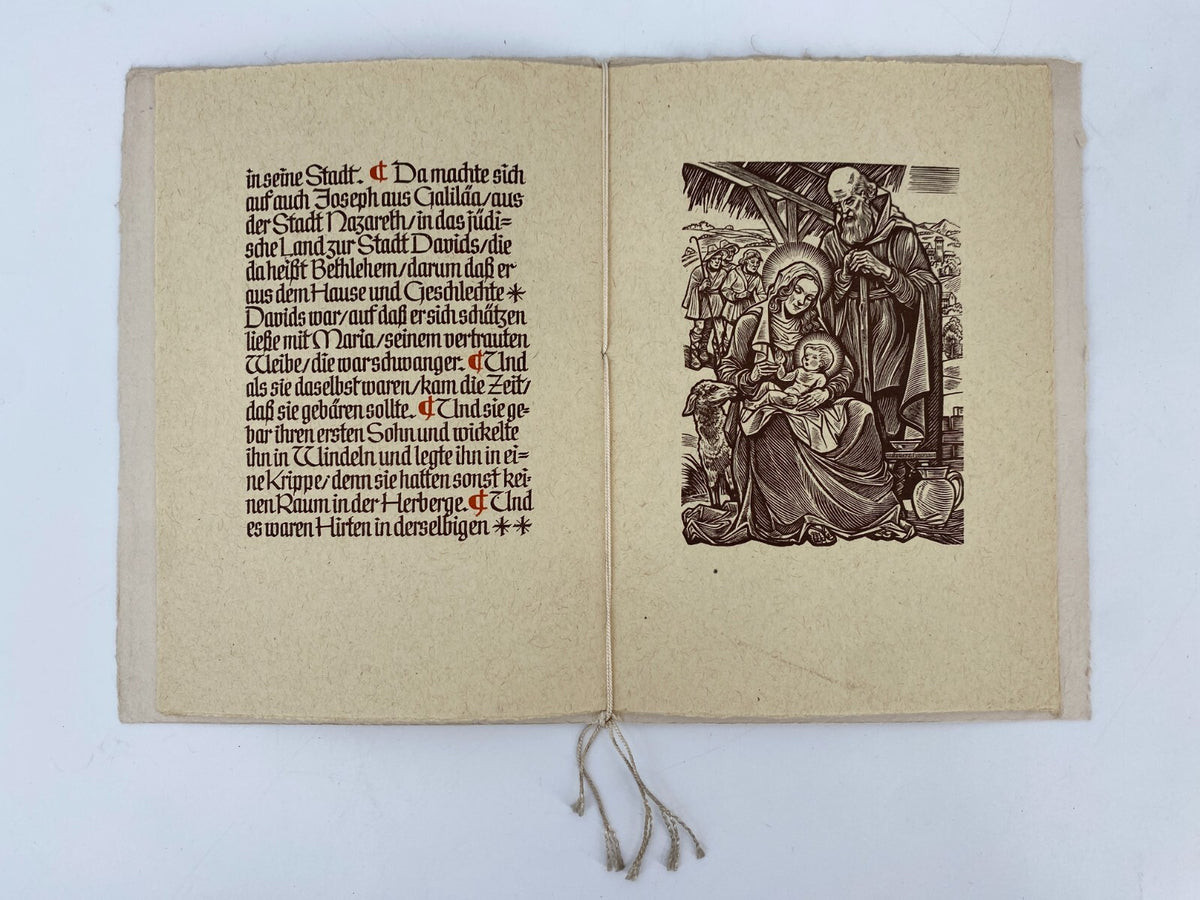 in seine Stadt. ¶ Da machte sich
auf auch Joseph aus Galiläa/aus
der Stadt Nazareth/in das jüdi=
sche Land zur Stadt Davids/die
da heißt Bethlehem/darum daß er
aus dem Hause und Geschlechte *
Davids war/auf daß er sich schätzen
ließe mit Maria/seinem vertrauten
Weibe/die war schwanger. ¶ Und
als sie daselbst waren/kam die Zeit/
daß sie gebären sollte. ¶ Und sie ge-
bar ihren ersten Sohn und wickelte
ihn in Windeln und legte ihn in ei=
ne Krippe/denn sie hatten sonst kei-
nen Raum in der Herberge. ¶ Und
es waren Hirten in derselbigen **